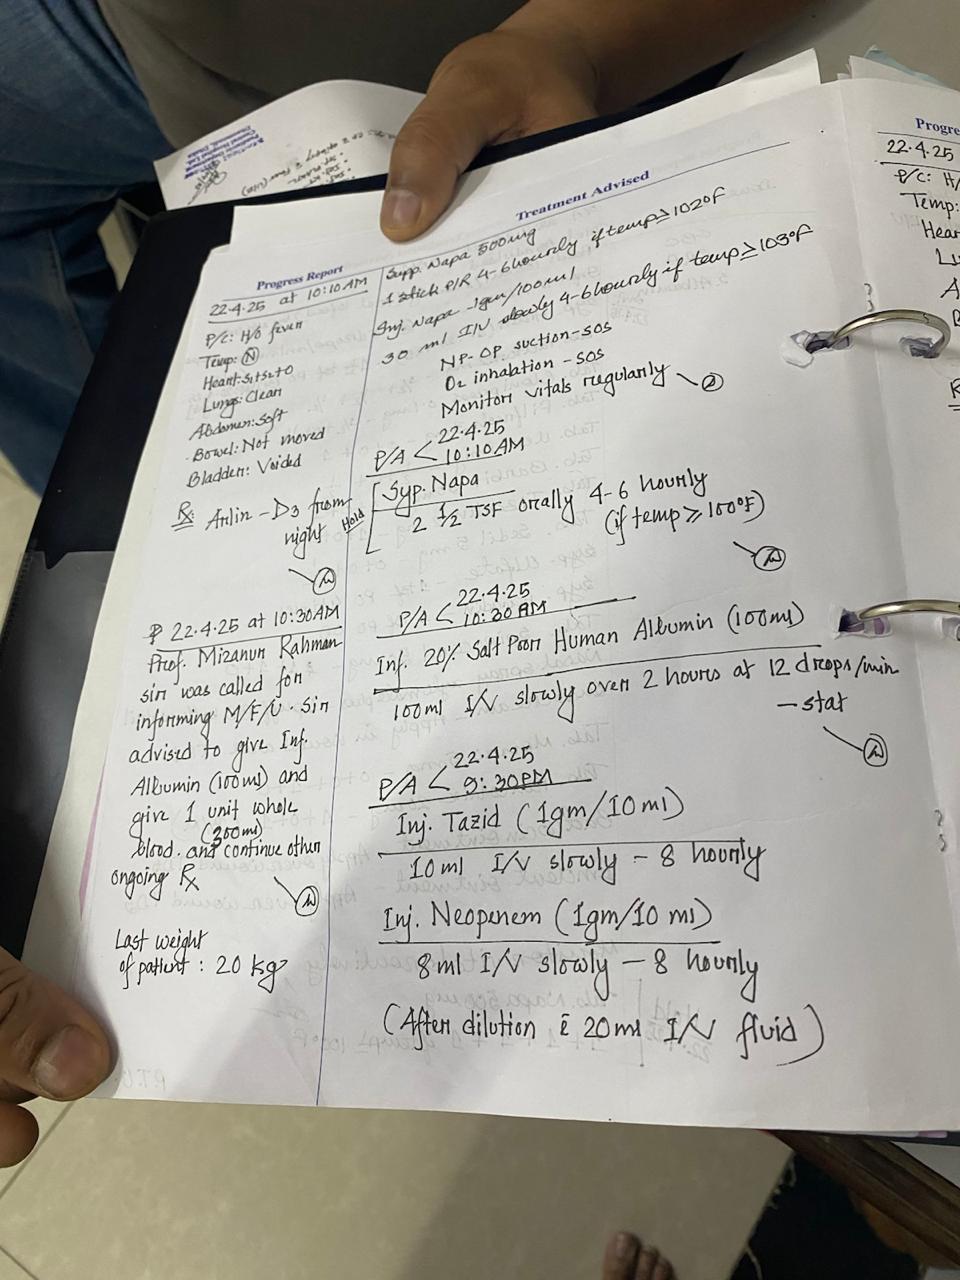 Progress Report
22-4-25 at 10:10AM
P/C: H/o fever
Temp: N
Heart: S1+S2+0
Lungs: Clear
Abdomen: Soft
Bowel: Not moved
Bladder: Voided
Rx Arlin - D3 from
night
22.4.25 at 10:30AM
Prof. Mizanur Rahman
sir was called for
informing M/F/U. Sir
advised to give Inf.
Albumin (100ml) and
give 1 unit whole
(300ml)
blood. and continue other
ongoing Rx
Last weight
of patient : 20 kg
Treatment Advised
Supp. Napa 500mg
1 stick P/R 4-6 hourly if temp ≥ 102°F
Inj. Napa - 1gm/100ml
30 ml I/V slowly 4-6 hourly if temp ≥ 103°F
NP-OP suction-SOS
O2 inhalation -SOS
Monitor vitals regularly
P/A < 22.4.25
10:10AM
Hold
Syp. Napa
2 1/2 TSF orally 4-6 hourly
(if temp ≥ 100°F)
P/A < 22.4.25
10:30 AM
Inf. 20% Salt Poor Human Albumin (100ml)
100ml I/V slowly over 2 hours at 12 drops/min
- stat
P/A < 22.4.25
9:30PM
Inj. Tazid (1gm/10ml)
10ml I/V slowly - 8 hourly
Inj. Neopenem (1gm/10 ml)
8ml I/V slowly - 8 hourly
(After dilution c̄ 20ml I/V fluid)
Progre
22.4.25
P/C: H/
Temp:
Hear